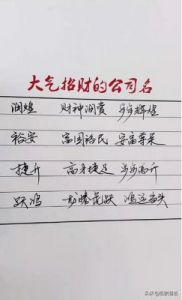 大气招财的公司名
润煌 财神润贵 步步辉煌
裕安 富国裕民 安富尊荣
捷升 高身捷足 步步高升
跃鸿 龙腾虎跃 鸿运当头